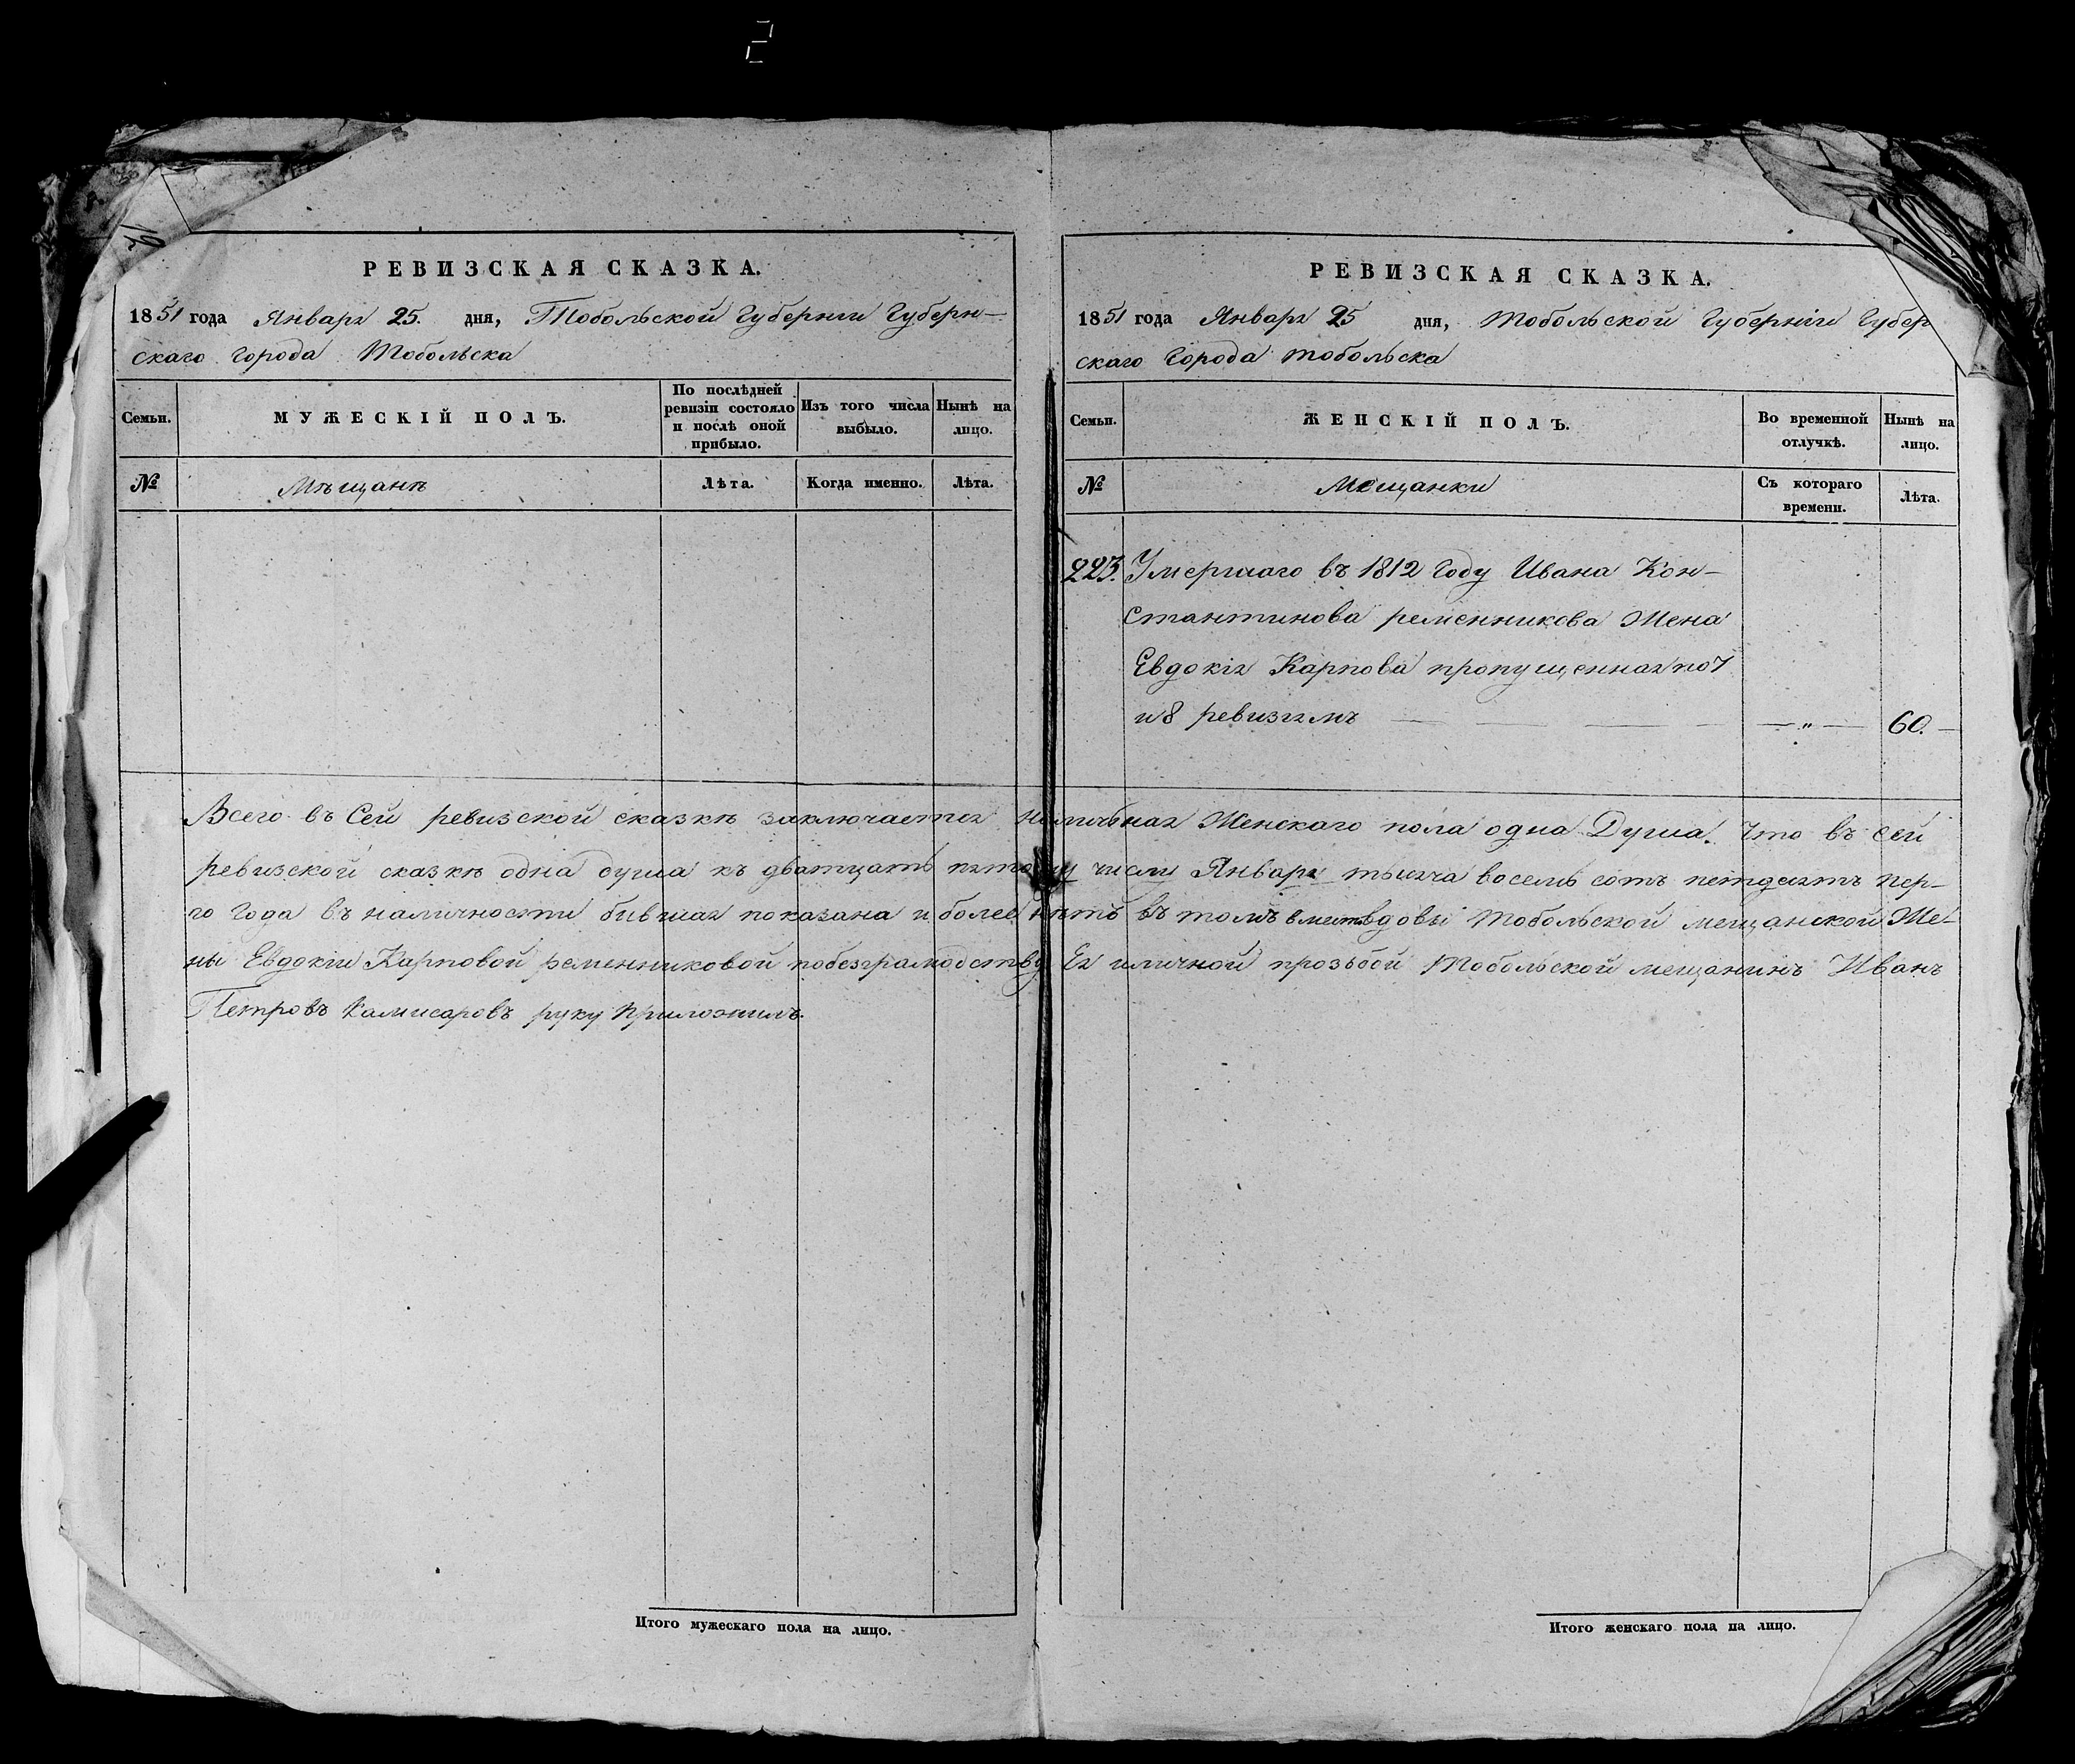 2
12
РЕВИЗСКАЯ СКАЗКА.
1851 года Января 25. дня, Тобольской Губернiи Губерн-
скаго города Тобольска
Семьи.
МУЖЕСКIЙ ПОЛЪ.
По послѣдней ревизiи состояло и послѣ оной прибыло.
Изъ того числа выбыло.
Нынѣ на лицо.
№
Мѣщанѣ
Лѣта.
Когда именно.
Лѣта.
РЕВИЗСКАЯ СКАЗКА.
1851 года Января 25 дня, Тобольской Губернiи Губер
скаго Города тобольска
Семьи.
ЖЕНСКIЙ ПОЛЪ.
Во временной отлучкѣ.
Нынѣ на лицо.
№
Мещанки
Съ котораго времени.
Лѣта.
223. Умершаго въ 1812 Году Ивана Кон-
стантинова ременникова Жена
Евдокiя Карпова пропущенная по 7
и 8 ревизiямъ — — — — „ — 60. —
Всего въ Сей ревизской сказкѣ заключается наличная Женскаго пола одна Душа. Что въ сей
ревизской сказкѣ одна душа къ дватцать пятому числу Января тысяча восемь сотъ петдесятъ пер-
го Года въ наличности бывшая показана и более нѣтъ въ томъ вместо вдовы Тобольской мещанской Же-
ны Евдокiи Карповой ременниковой побезграмодству Ея иличной прозьбой Тобольской мещанинъ Иванъ
Петровъ Камисаровъ руку приложилъ.
Итого мужескаго пола на лицо.
Итого женскаго пола на лицо.